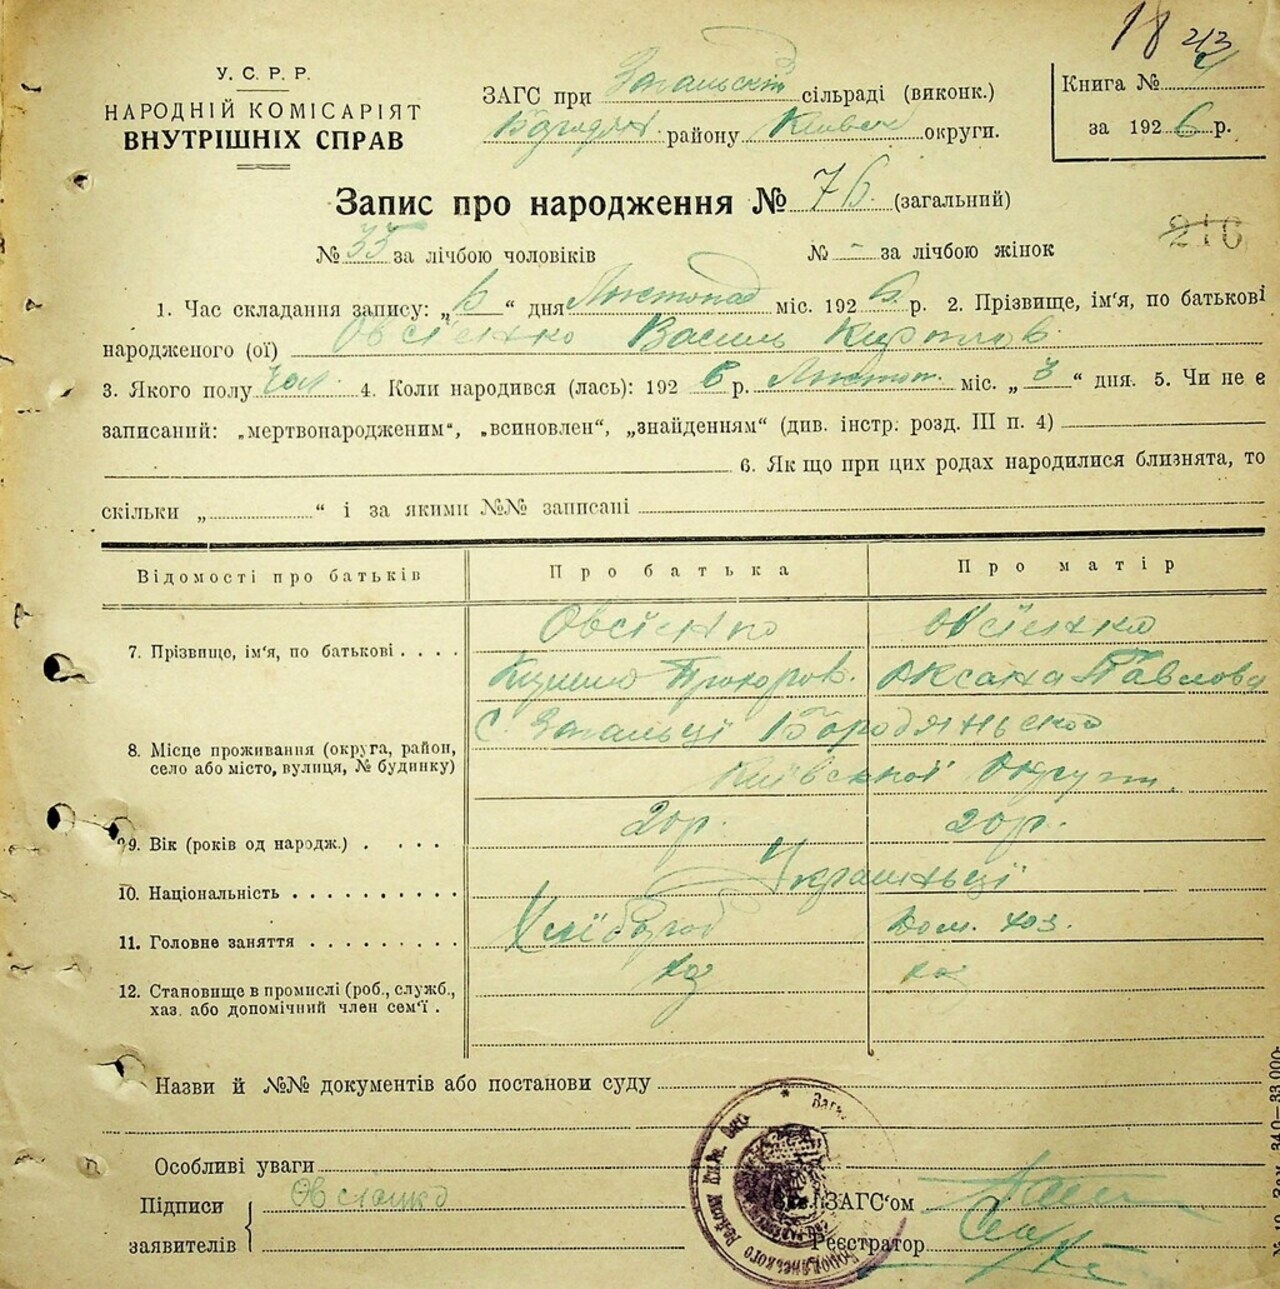 18 213
У. С. Р. Р.
НАРОДНІЙ КОМІСАРІЯТ
ВНУТРІШНІХ СПРАВ
ЗАГС при Загальській сільраді (виконк.)
Бородян. району Київськ округи.
Книга №
за 1926 р.
Запис про народження № 76. (загальний)
216
№ 35 за лічбою чоловіків № - за лічбою жінок
1. Час складання запису: „6“ дня Листопад міс. 1926 р. 2. Прізвище, ім'я, по батькові
народженого (ої) Овсієнко Василь Кирилов.
3. Якого полу чол. 4. Коли народився (лась): 1926 р. Листоп. міс. „3“ дня. 5. Чи не є
записаний: „мертвонародженим“, „всиновлен“, „знайденням“ (див. інстр. розд. III п. 4)
6. Як що при цих родах народилися близнята, то
скільки „ “ і за якими №№ записані
Відомості про батьків Про батька Про матір
7. Прізвище, ім'я, по батькові Овсієнко Овсієнко
Кирило Прохоров. Оксана Павлова
8. Місце проживання (округа, район, С. Загальці Бородянської
село або місто, вулиця, № будинку) Київської Округи.
9. Вік (років од народж.) 20р. 20р.
10. Національність Україньці
11. Головне заняття Хлібороб Дом. хоз.
12. Становище в промислі (роб., служб., хаз
хаз. або допомічний член сем'ї.
Назви й №№ документів або постанови суду
Особливі уваги
Підписи Овсієнко
заявителів
ЗАГС'ом
Реєстратор